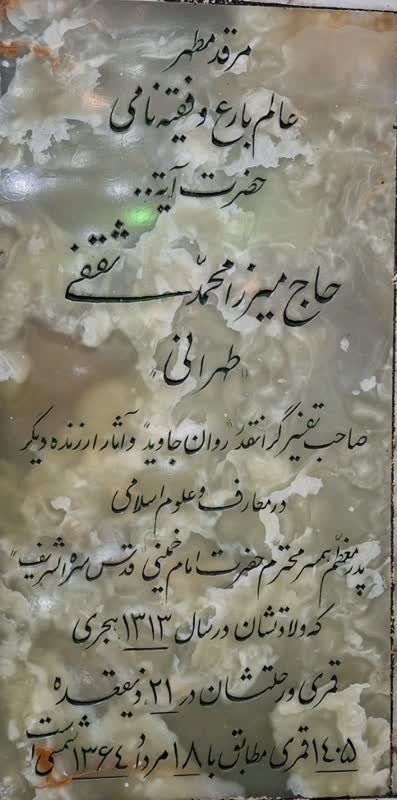 مرقد مطهر
عالم بارع و فقیه نامی
حضرت آیة..
حاج میرزا محمّد ثقفی
"طهرانی"
صاحب تفسیر گرانقدر "روان جاوید" و آثار ارزنده دیگر
در معارف و علوم اسلامی
پدر معظم همسر محترم حضرت امام خمینی "قدس سره الشریف"
که ولادتشان در سال ۱۳۱۳ هجری
قمری و رحلتشان در ۲۱ ذیقعده
۱۴۰۵ قمری مطابق با ۱۸ مرداد ۱۳۶۴ شمسی است